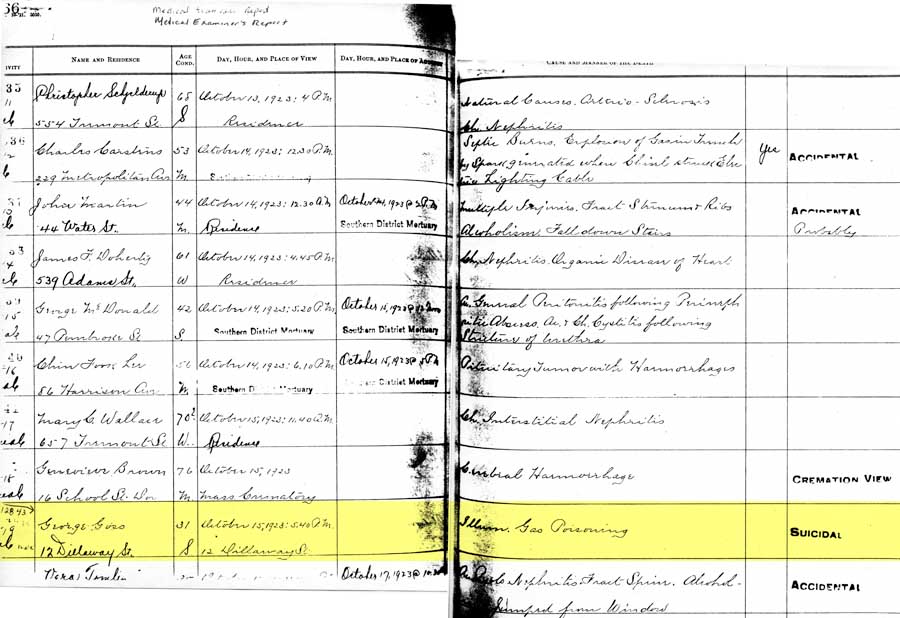 36
Medical Examiner's Report
Medical Examiner's Report
NAME AND RESIDENCE AGE COND. DAY, HOUR, AND PLACE OF VIEW DAY, HOUR, AND PLACE OF CAUSE AND MANNER OF THE DEATH
35 Christopher 68 October 13, 1923; 4 P.M. Natural Causes. Arterio-Sclerosis
554 Tremont St. S Residence Ch. Nephritis
36 Charles Carstens 53 October 14, 1923; 12.30 P.M. Septic Burns. Explosion of Gas in Trench Yes ACCIDENTAL
by Spark generated when Chisel struck Elec
229 Metropolitan Ave M. tric Lighting Cable
John Martin 44 October 14, 1923; 12.30 A.M. Multiple Injuries. Fract Sternum & Ribs ACCIDENTAL
44 Water St. M. Residence Southern District Mortuary Alcoholism. Fall down Stairs Probably
James F. Doherty 61 October 14, 1923; 4.45 P.M. Ch. Nephritis. Organic Disease of Heart
539 Adams St. W Residence
George McDonald 42 October 14, 1923; 5.20 P.M. October 15, 1923 @ Ac. General Peritonitis following
Abscess. Ac. & Ch. Cystitis following
47 Pembroke St S. Southern District Mortuary Southern District Mortuary Stricture of Urethra
Chin Foos Lee 56 October 14, 1923; 6.10 P.M. October 15, 1923 @ P.M. Pituitary Tumor with Haemorrhages
86 Harrison Ave M. Southern District Mortuary Southern District Mortuary
Mary C. Wallace 70 October 15, 1923; 11.40 A.M. Ch. Interstitial Nephritis
657 Tremont St W. Residence
Genevieve Brown 76 October 15, 1923 Cerebral Haemorrhage CREMATION VIEW
16 School St. Dor M. Mass Crematory
George Goss 31 October 15, 1923; 5.40 P.M. Illum. Gas Poisoning SUICIDAL
12 Dillaway St. S 12 Dillaway St.
October 17, 1923 @ Nephritis Fract Spine. Alcohol- ACCIDENTAL
Jumped from Window